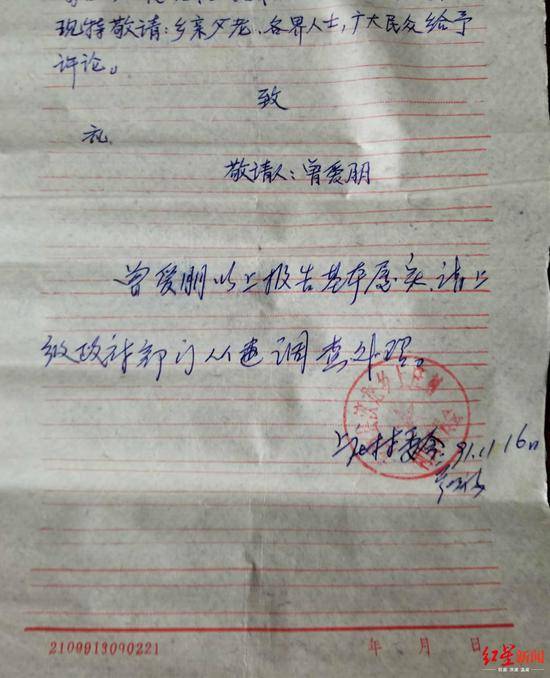 现特敬请：乡亲父老、各界人士，广大民众给予
评论。
致
礼
敬请人：曾爱朋
曾爱朋以上报告基本属实，请上
级政府部门从速调查处理。
村委会 91.11 16日
2100913090221
年 月 日
红星新闻